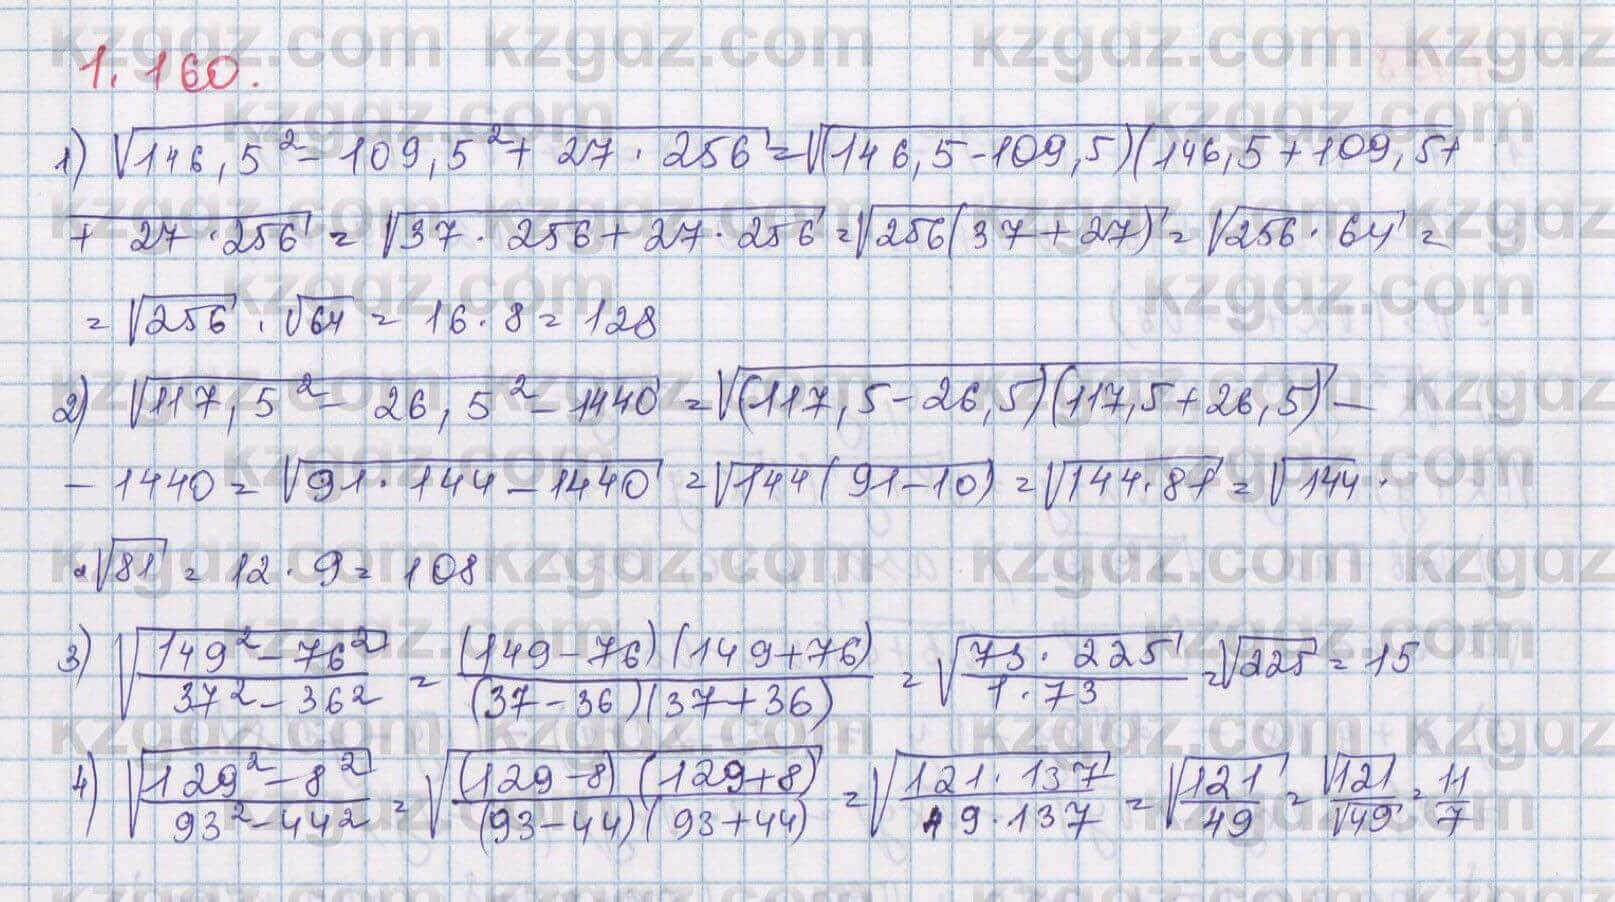 1.160.
1) √146,5² - 109,5² + 27 · 256 = √(146,5 - 109,5)(146,5 + 109,5 +
+ 27 · 256 = √37 · 256 + 27 · 256 = √256(37 + 27) = √256 · 64 =
= √256 · √64 = 16 · 8 = 128
2) √117,5² - 26,5² - 1440 = √(117,5 - 26,5)(117,5 + 26,5) -
- 1440 = √91 · 144 - 1440 = √144(91 - 10) = √144 · 81 = √144 ·
· √81 = 12 · 9 = 108
3) √(149² - 76²)/(37² - 36²) = (149 - 76)(149 + 76)/(37 - 36)(37 + 36) = √(73 · 225)/(1 · 73) = √225 = 15
4) √(129² - 8²)/(93² - 44²) = √(129 - 8)(129 + 8)/(93 - 44)(93 + 44) = √(121 · 137)/(49 · 137) = √121/49 = √121/√49 = 11/7
kzgdz.com